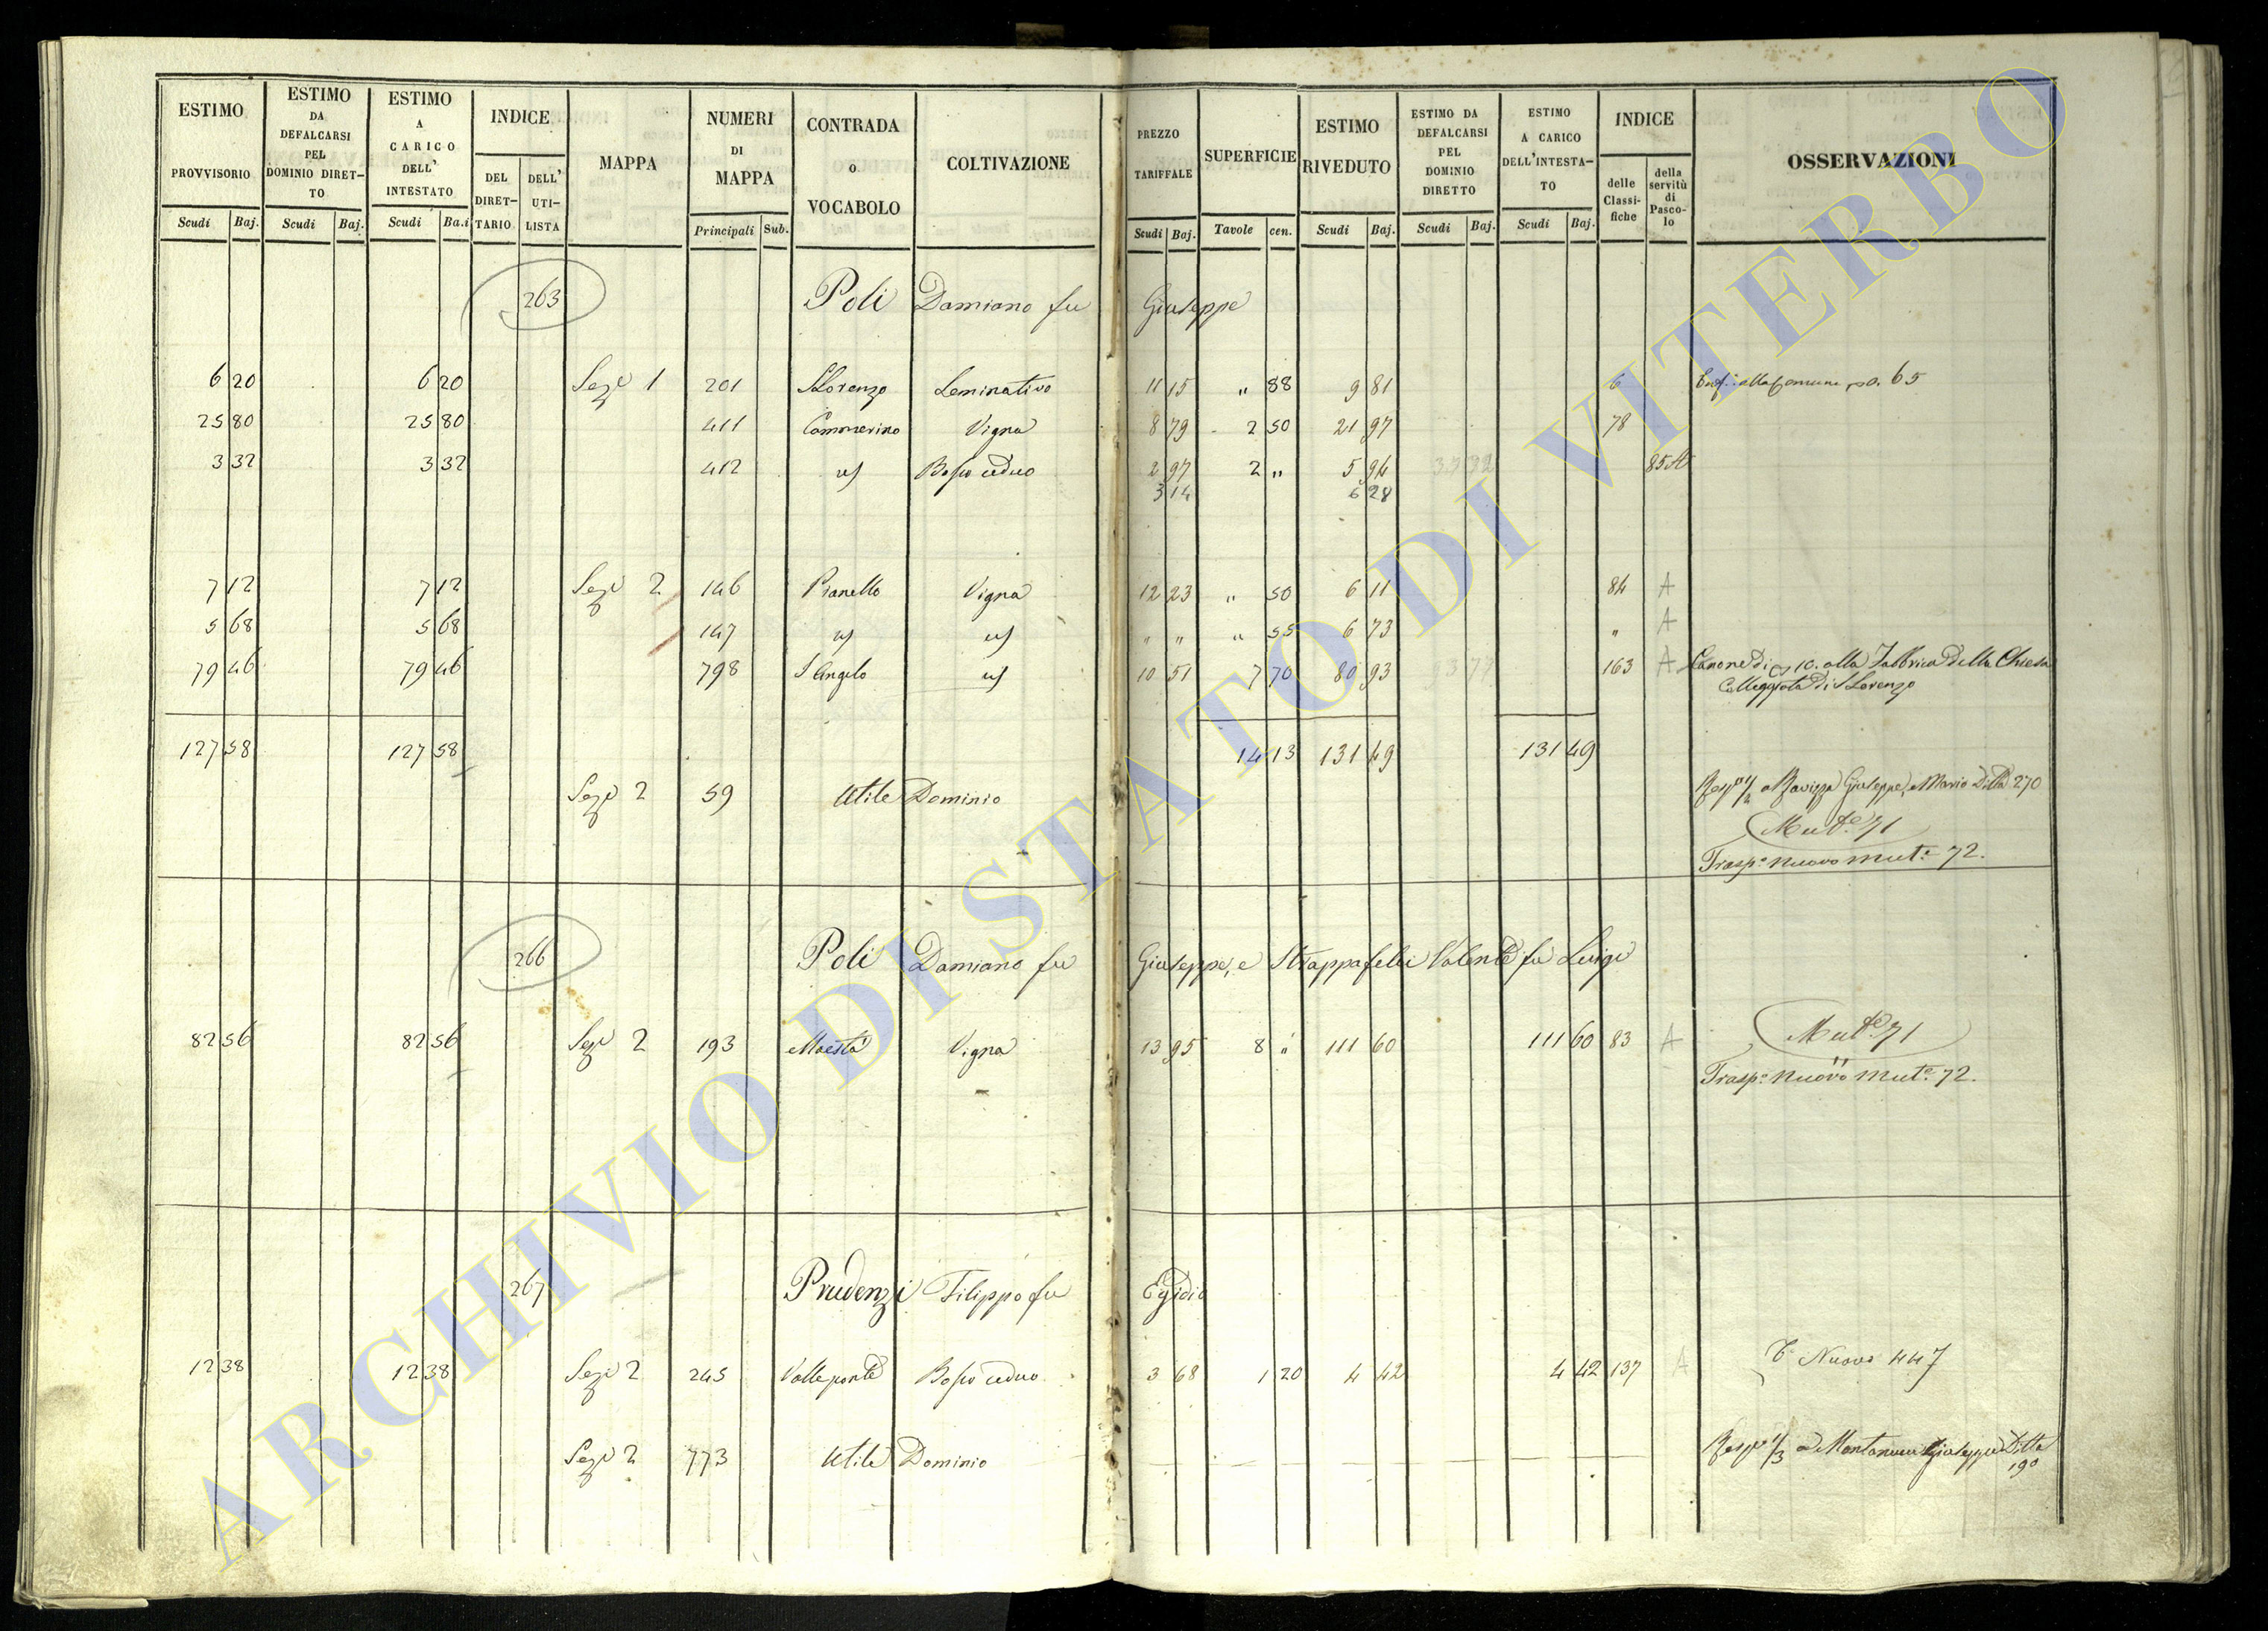 ESTIMO PROVVISORIO Scudi Baj.
ESTIMO DA DEFALCARSI PEL DOMINIO DIRET-TO Scudi Baj.
ESTIMO A CARICO DELL' INTESTATO Scudi Ba.i
INDICE DEL DIRET-TARIO DELL' UTI-LISTA
MAPPA
NUMERI DI MAPPA Principali Sub.
CONTRADA o VOCABOLO
COLTIVAZIONE
PREZZO TARIFFALE Scudi Baj.
SUPERFICIE Tavole cen.
ESTIMO RIVEDUTO Scudi Baj.
ESTIMO DA DEFALCARSI PEL DOMINIO DIRETTO Scudi Baj.
ESTIMO A CARICO DELL'INTESTA-TO Scudi Baj.
INDICE delle Classi-fiche della servitù di Pasco-lo
OSSERVAZIONI
263 Poli Damiano fu Giuseppe
6 20 6 20 Seze 1 201 S Lorenzo Seminativo 11 15 " 88 9 81 6 alla Comune 65
25 80 25 80 411 Commerino Vigna 8 79 2 50 21 97 78
3 32 3 32 412 id Bosco ceduo 2 97 2 " 5 94 85
3 14 6 28
7 12 7 12 Seze 2 146 Pianello Vigna 12 23 " 50 6 11 84 A
5 68 5 68 147 id id " " " 55 6 73 " A
79 46 79 46 798 S Angelo id 10 51 7 70 80 93 3 77 163 A Canone di 10. alla Fabbrica della Chiesa
Colleggiata di S Lorenzo
127 58 127 58 14 13 131 49 131 49
Seze 2 59 Utile Dominio Resp 1/2 a Ravizza Giuseppe, e Mario Ditta 270
Mute 71
Trasp.o nuovo mut.e 72.
266 Poli Damiano fu Giuseppe, e Strappafelci Valente fu Luigi
82 56 82 56 Seze 2 193 Maestà Vigna 13 95 8 " 111 60 111 60 83 A Mute 71
Trasp.o nuovo mut.e 72.
267 Prudenzi Filippo fu Egidio
12 38 12 38 Seze 2 245 Valleponte Bosco ceduo 3 68 1 20 4 42 4 42 137 A Nuovo 447
Seze 2 773 Utile Dominio Resp 1/3 a Montanucci Giuseppe Ditta
190
ARCHIVIO DI STATO DI VITERBO